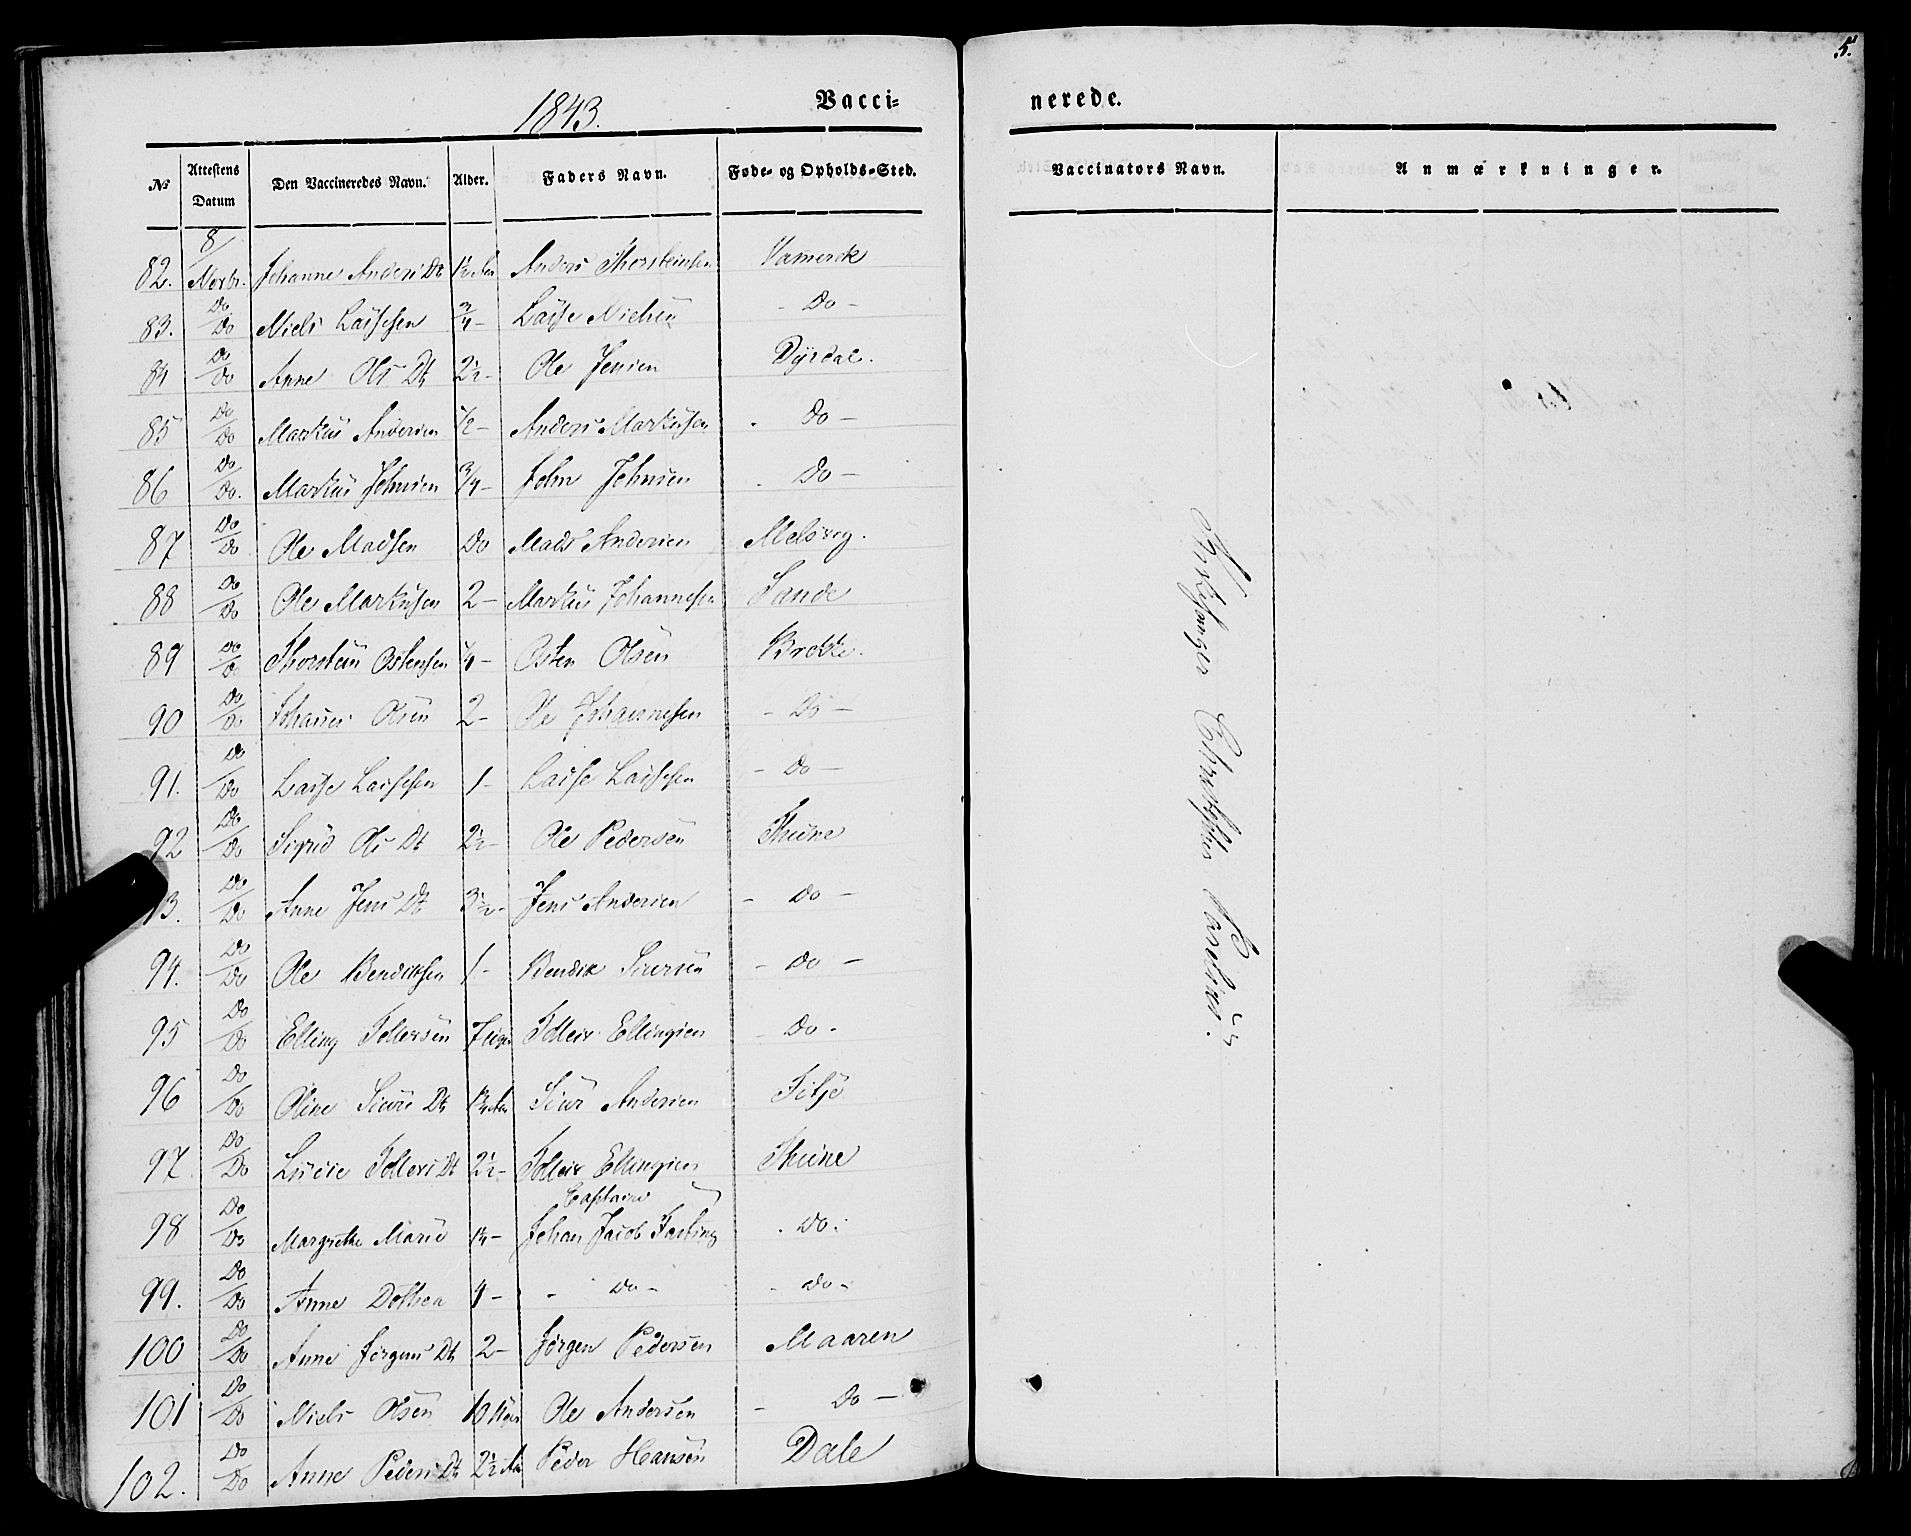 5.
1843.
Vacci=
nerede.
No
Attestens Datum
Den Vaccineredes Navn.
Alder.
Faders Navn.
Føde- og Opholds-Sted.
Vaccinators Navn.
Anmærkninger.
82. 8/Novbr. Johanne Anders Dt 1½ Aar Anders Thorsteinsen Vamerek
83. Do/Do Niels Lassesen ¾ - Lasse Nielsen - Do -
84 Do/Do Anne Ols Dt 2½ - Ole Jensen Dyrdal.
85 Do/Do Markus Andersen ½ - Anders Markusen . Do -
86 Do/Do. Markus Johnsen ¾ - John Johnsen . Do -
87 Do/Do Ole Madsen Do Mads Andersen Melsvog.
88 Do/Do Ole Markusen 2 - Markus Johannesen Sande
89 Do/Do Thorstein Ostensen ¼ - Osten Olsen Brekke.
90 Do/Do Johannes Olsen 2 - Ole Johannesen - Do -
91. Do/Do Lasse Lassesen 1 - Lasse Lassesen - Do -
92 Do/Do Sigrid Ols Dt 2½ - Ole Pedersen Thune
3. Do/Do Anne Jens Dt 3½ - Jens Andersen - Do -
94. Do/Do Ole Bendiksen 1 - Bendix Siursen - Do -
95 Do/Do Elling Tollersen 7 Uger Tolleir Ellingsen - Do -
96 Do/Do Oline Siurs Dt 1¼ Aar Siur Andersen Titje
97 Do/Do Lucie Tollers Dt 2½ - Tolleir Ellingsen Thune
98 Do/Do Margrethe Marie 1¼ - Captain Johan Jacob Fasting . Do .
99. Do/Do Anne Dothea 4 - - Do - - Do -
100 Do/Do Anne Jørgens Dt 2 - Jørgen Pedersen Maaren
101 Do/Do Niels Olsen 10 Uger Ole Andersen - Do -
102. Do/Do Anne Peders Dt 2½ Aar Peder Hansen Dale
Kirkesanger Christopher